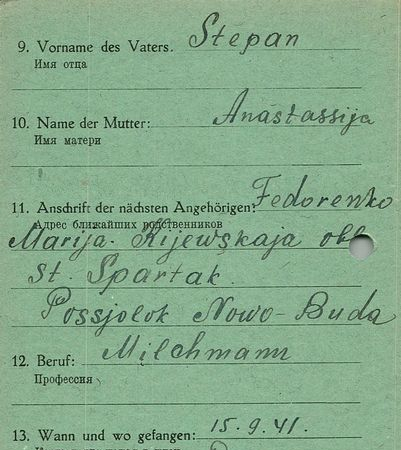 9. Vorname des Vaters. Stepan
Имя отца
10. Name der Mutter: Anastassija
Имя матери
11. Anschrift der nächsten Angehörigen: Fedorenko
Адрес ближайших родственников
Marija. Kijewskaja obl
st. Spartak.
Possjolok Nowo-Buda
12. Beruf: Milchmann
Профессия
13. Wann und wo gefangen: 15.9.41.